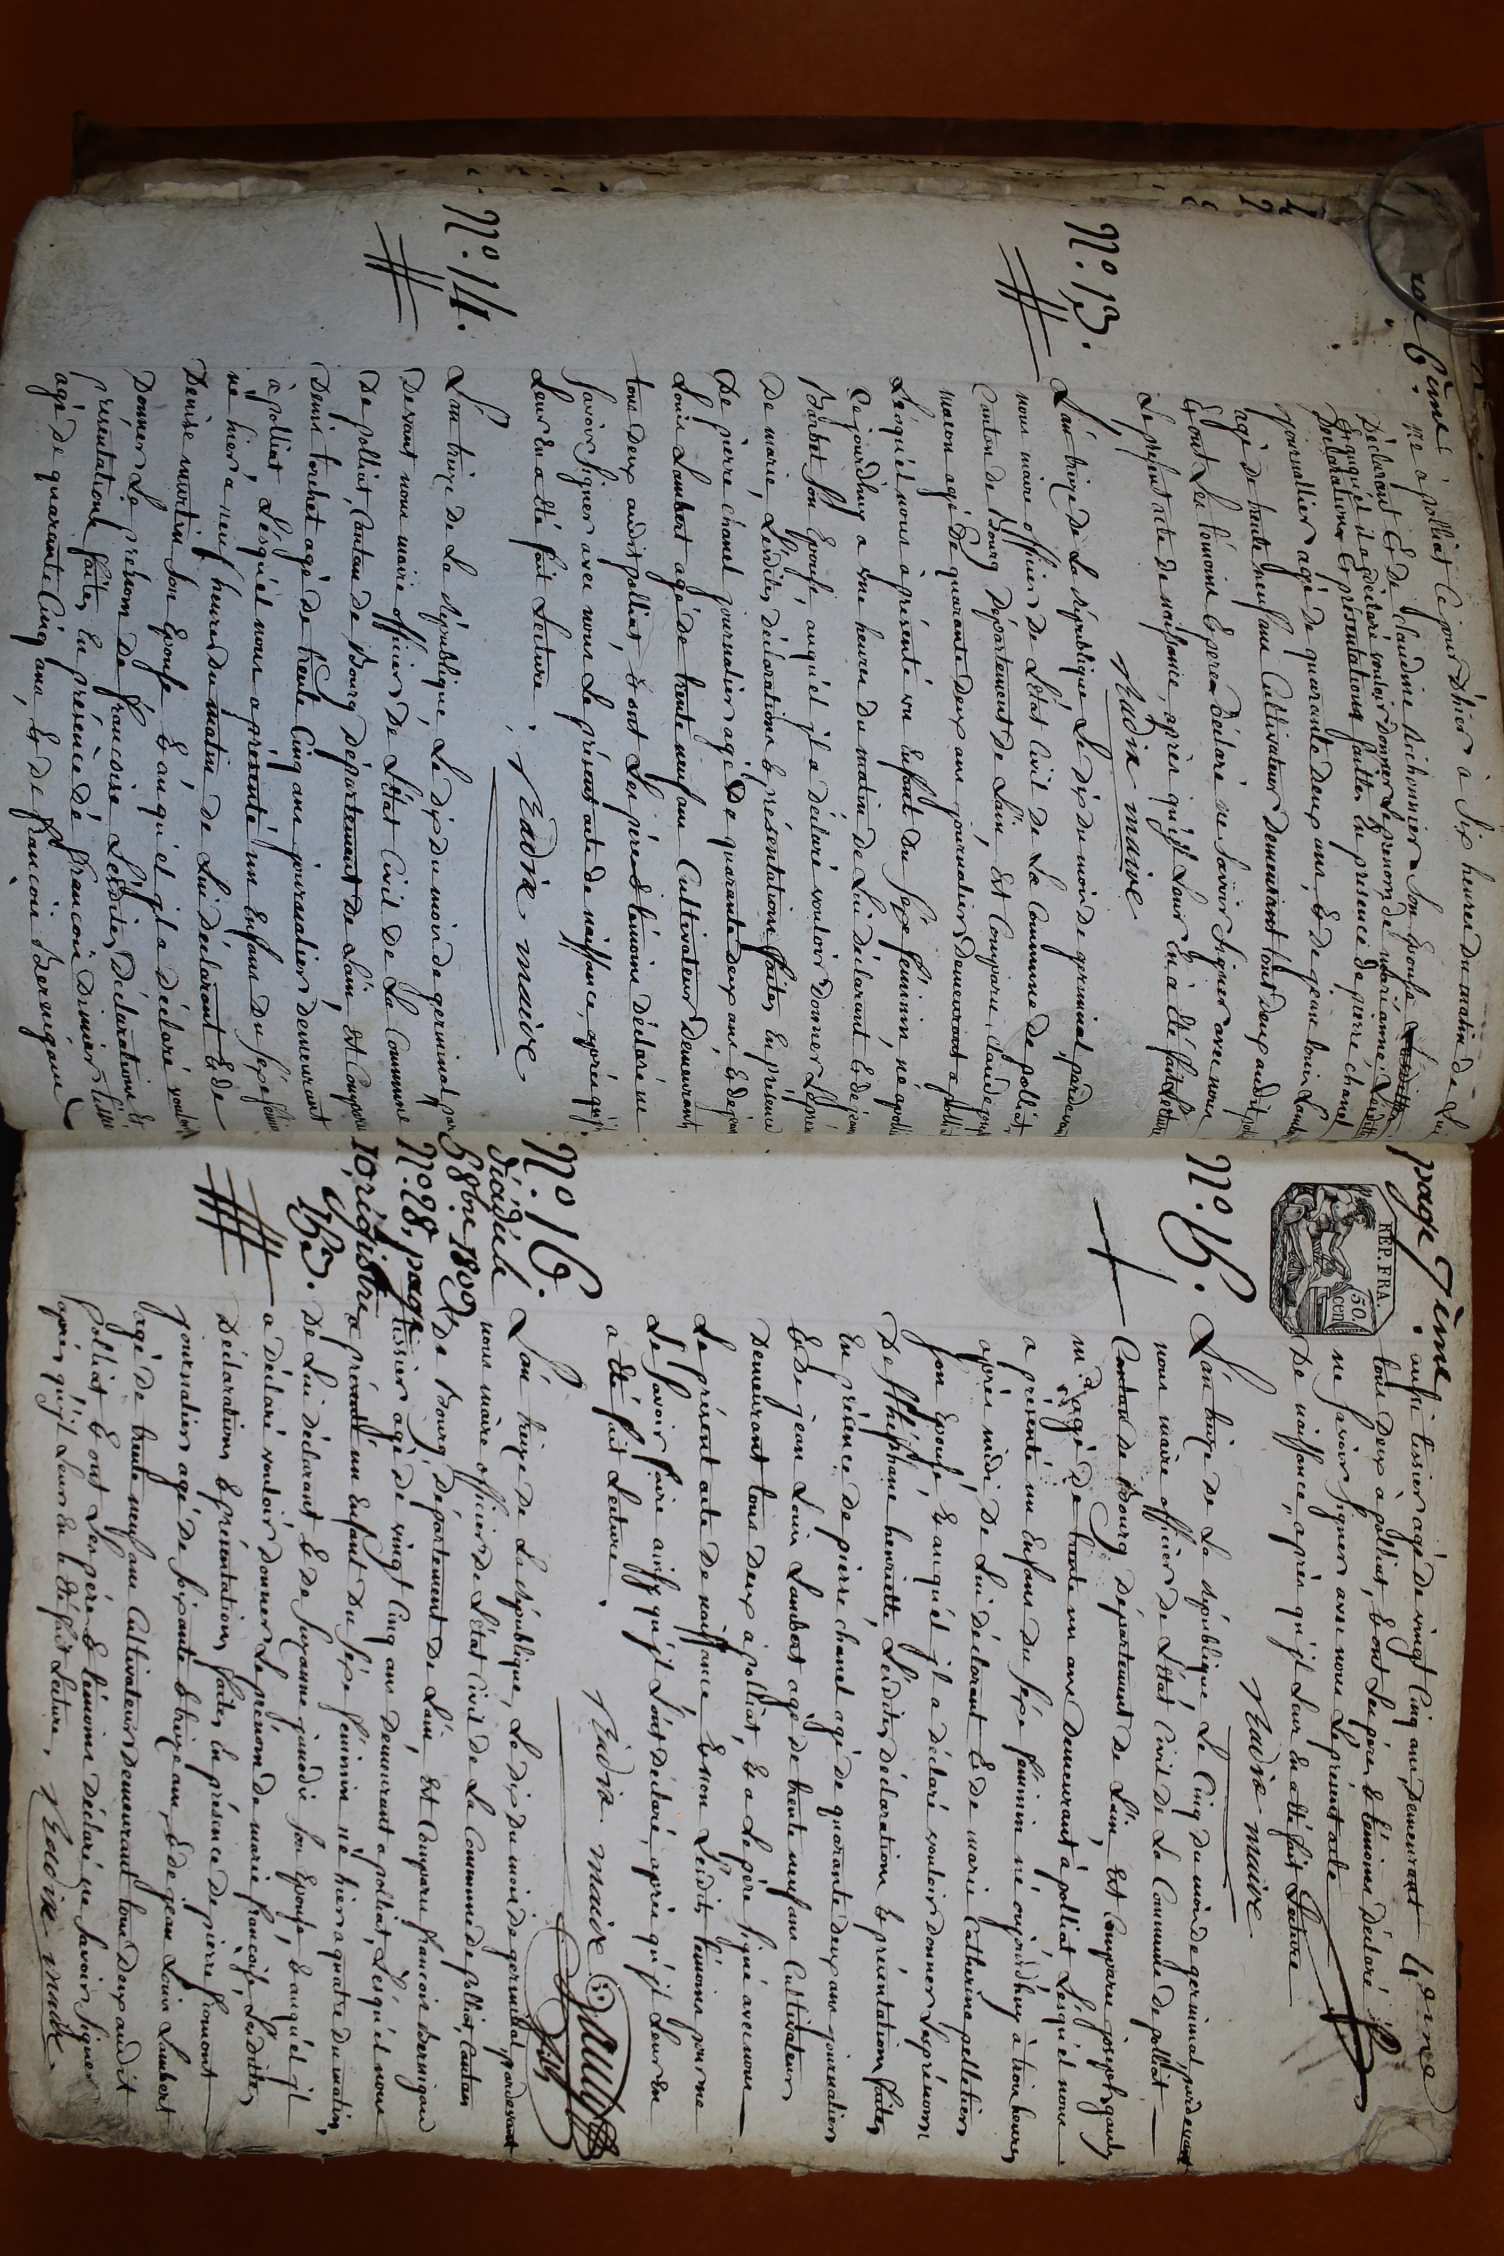 page 6ème
né à polliat Ce jour d'hier à Six heures du matin de Lui
Déclarant & de Claudine Bichonnier Son Epouse
Et auquel il a déclaré vouloir donner Le prenom de marianne Lesdittes
Déclarations & présentations faittes En présence de pierre chanel
journallier agé de quarante Deux ans, & De jean Louis Lambert
agé de trente neuf ans Cultivateur Demeurant tout Deux audit polliat
& ont Les témoins & père Déclaré ne Savoir Signer avec nous
Le présent acte de naissance, après qu'il Leur En a été fait Lecture
maire
N.º 13.
L'an treize de La République, Le dix du mois de germinal, pardevant
nous maire officier De L'état Civil De La Commune De polliat,
Canton de Bourg Département de L'ain, Est Comparu, claude
macon agé De quarante Deux ans journalier Demeurant a polliat
Lesquel nous a présenté un Enfant du Sexe feminin, né a polliat
Ce jourdhuy a une heure Du matin de Lui déclarant & de jeanne
Barbet Son Epouse, auquel jl a déclaré vouloir Donner Le prénom
De marie, Lesdittes déclarations & présentations faites En présence
De pierre chanel journalier agé De quarante Deux ans, & De jean
Louis Lambert agé de trente neuf ans Cultivateur Demeurant
tous Deux audit polliat, & ont Les père & témoins Déclaré ne
Savoir Signer avec nous Le présent acte de naissance, après qu'jl
Leur En a été fait Lecture.
maire
N.º 14.
L'an treize De La République, Le dix du mois de germinal, par
Devant nous maire officier De L'état Civil De La Commune
De polliat, Canton de Bourg Département de L'ain, Est Comparu
Denis torchet agé De trente Cinq ans journalier Demeurant
à polliat, Lesquel nous a présenté un Enfant Du Sexe feminin
né hier a neuf heures Du matin De Lui Déclarant & De
Denise morin Son Epouse & auquel jl a Déclaré vouloir
Donner Le prenom De francoise, Lesdittes Déclarations &
présentations faites En présence De francois Divier
agé De quarante Cinq ans, & De francois Bernigaud
page 7ème
aussi tissier agé De vingt Cinq ans Demeurant
tous Deux à polliat, & ont Les père & témoins Déclaré
ne Savoir Signer avec nous Le présent acte
De naissance, après qu'jl Leur En a été fait Lecture
maire
REP. FRA.
50
cen
N.º 15.
L'an treize De La République, Le Cinq Du mois de germinal, pardevant
nous maire officier De L'état Civil De La Commune De polliat
Canton de Bourg Département De L'ain, Est Comparu joseph gauly
agé de trente un ans Demeurant à polliat Lesquel nous
a présenté un Enfant Du Sexe feminin né aujourd'huy à trois heures
après midi De Lui Déclarant & De marie Catherine pelletier
Son Epouse, & auquel jl a déclaré vouloir donner Les prénoms
De Stéphanie henriette Lesdittes Déclarations & présentations faites
En présence De pierre chanel agé De quarante Deux ans journalier
& De jean Louis Lambert agé De trente neuf ans Cultivateur
Demeurant tous Deux à polliat, & a Le père Signé avec nous
Le présent acte De naissance & non Lesdits témoins pour ne
Le Savoir faire ainsy qu'jl L'ont déclaré, après qu'jl Leur En
a été fait Lecture.
maire
N.º 16.
8bre 1809
N.º 28, page
10, régistre
L'an treize De La République, Le Dix Du mois De germinal pardevant
nous maire officier De L'état Civil De La Commune De polliat, Canton
De Bourg, Département De L'ain, Est Comparu francois Bernigaud
tissier agé De vingt Cinq ans Demeurant a polliat, Lesquel nous
a présenté un Enfant Du Sexe feminin né hier a quatre Du matin,
De Lui Déclarant & De Suzanne Son Epouse, & auquel jl
a Déclaré vouloir Donner Le prénom De marie francoise, Lesdittes
Déclarations & présentations faites En présence De pierre fromont
journalier agé De Soixante & treize ans, & De jean Louis Lambert
agé De trente neuf ans Cultivateur Demeurant tous Deux audit
polliat & ont Les père & témoins Déclaré ne Savoir Signer
après qu'jl Leur En a été fait Lecture.
maire